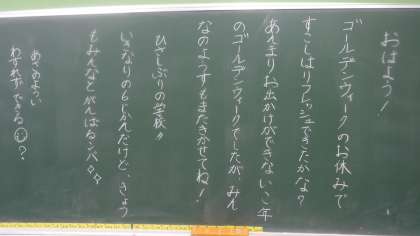 おはよう!
ゴールデンウィークのお休みで
すこしはリフレッシュできたかな?
あんまりお出かけができないこ年
のゴールデンウィークでしたが、みん
なのようすもまたきかせてね!
ひさしぶりの学校〃
いきなりの6じかんだけど、きょう
もみんなとがんばるンバ✧✧
あさのようい
わすれずできる☺?